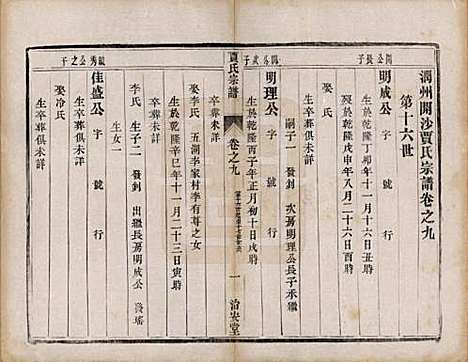 潤州開沙賈氏宗譜卷之九
第十六世
開公長子
明威公 字 號 行
生於乾隆丁卯年十一月二十六日丑時
娶 氏
生於乾隆戊申年八月二十六日酉時
生卒葬俱未詳
嗣子一 發釗 次房明理公長子承繼
開公次子
明理公 字 號 行
生於乾隆丙子年正月初十日戌時
卒葬未詳
賈氏宗譜
卷之九
一
治安堂
娶李氏 五湖李家村李有尊之女
生於乾隆辛巳年十一月二十三日寅時
卒葬未詳
李氏 生子二 發釗 出繼長房明威公 發瑤
生女一
毓秀公之子
佳盛公 字 號 行
生卒葬俱未詳
娶冷氏
生卒葬俱未詳